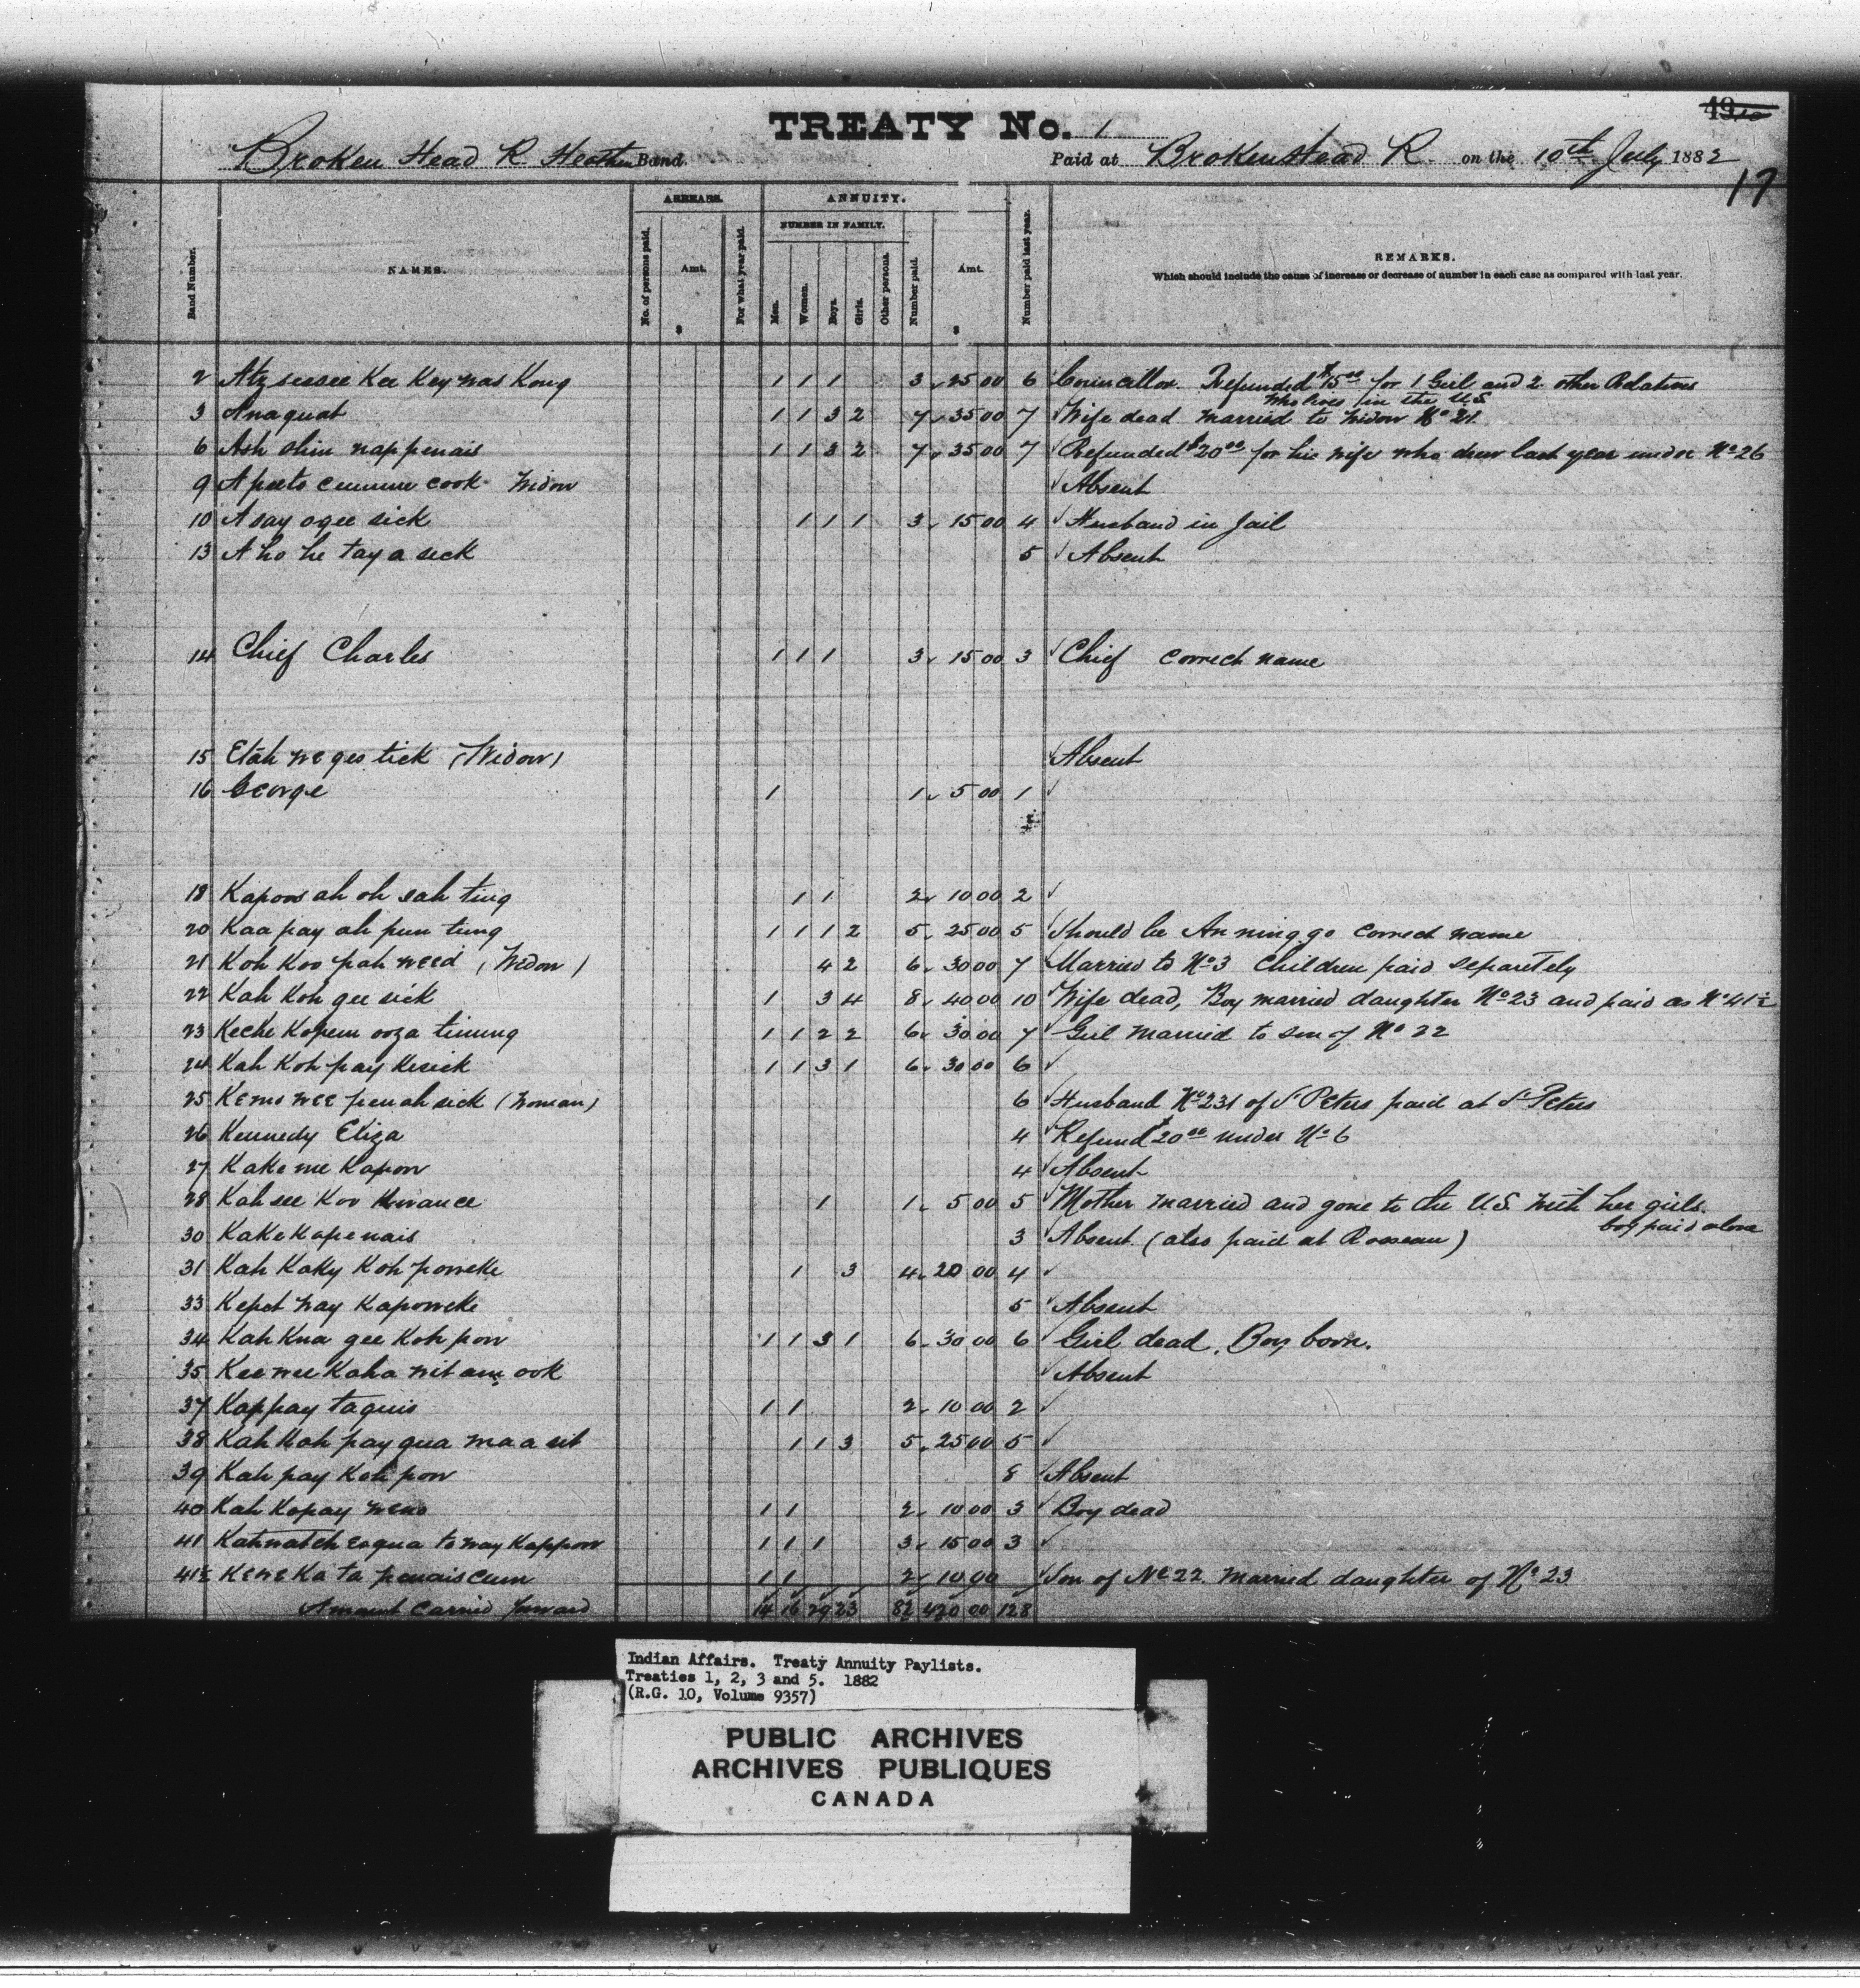 49
TREATY No. 1
Broken Head R Heathen Band. Paid at Brokenhead R. on the 10th July 1882
17
ARREARS. ANNUITY.
NUMBER IN FAMILY.
Band Number. NAMES. No. of persons paid. Amt. $ For what year paid. Men. Women. Boys. Girls. Other persons. Number paid. Amt. $ Number paid last year. REMARKS.
Which should include the cause of increase or decrease of number in each case as compared with last year.
2 Atz seesee Kee Key was Kong 1 1 1 3 25 00 6 Councillor. Refunded $15 00 for 1 Girl and 2 other Relatives
who lives in the U.S
3 Anaquat 1 1 3 2 7 35 00 7 Wife dead married to Widow No 21
6 Ash shin nappenais 1 1 3 2 7 35 00 7 Refunded $20 00 for his wife who drew last year under No 26
9 Apeeto cook Widow Absent
10 A say ogee sick 1 1 1 3 15 00 4 Husband in Jail
13 A ho he tay a seck 5 Absent
14 Chief Charles 1 1 1 3 15 00 3 Chief correct name
15 Etah we ges tick (Widow) Absent
16 George 1 1 5 00 1
18 Kapoos ah oh sah ting 1 1 2 10 00 2
20 Kaa pay ah pun tung 1 1 1 2 5 25 00 5 Should be An ning go correct name
21 Koh Koo pah weed (Widow) 4 2 6 30 00 7 Married to No 3 Children paid separetely
22 Kah Koh gee sick 1 3 4 8 40 00 10 Wife dead, Boy married daughter No 23 and paid as No 41½
23 Keche Kopem ooza timung 1 1 2 2 6 30 00 7 Girl married to son of No 22
24 Kah Koh pay Kesick 1 1 3 1 6 30 00 6
25 Kemo wee penah sick (Woman) 6 Husband No 231 of St Peters paid at St Peters
26 Kennedy Eliza 4 Refund $20 00 under No 6
27 Kake me Kapow 4 Absent
28 Kah see Koo 1 1 5 00 5 Mother married and gone to the U.S. with her girls.
boy paid alone
30 Kake Kape nais 3 Absent (also paid at Rosseau)
31 Kah Kaky Koh poweke 1 3 4 20 00 4
33 Kepet way Kapoweke 5 Absent
34 Kah Kna gee Koh pow 1 1 3 1 6 30 00 6 Girl dead, Boy born.
35 Kee wee Kaha wit am ook Absent
37 Kappay taquis 1 1 2 10 00 2
38 Kah Kah pay qua maa sit 1 1 3 5 25 00 5
39 Kah pay Koh pow 8 Absent
40 Kah Kopay weno 1 1 2 10 00 3 Boy dead
41 Kahwatch esqua to way Kappow 1 1 1 3 15 00 3
41½ Keweka ta penais cum 1 1 2 10 00 Son of No 22 married daughter of No 23
Amount Carried forward 14 16 29 23 82 420 00 128
Indian Affairs. Treaty Annuity Paylists.
Treaties 1, 2, 3 and 5. 1882
(R.G. 10, Volume 9357)
PUBLIC ARCHIVES
ARCHIVES PUBLIQUES
CANADA